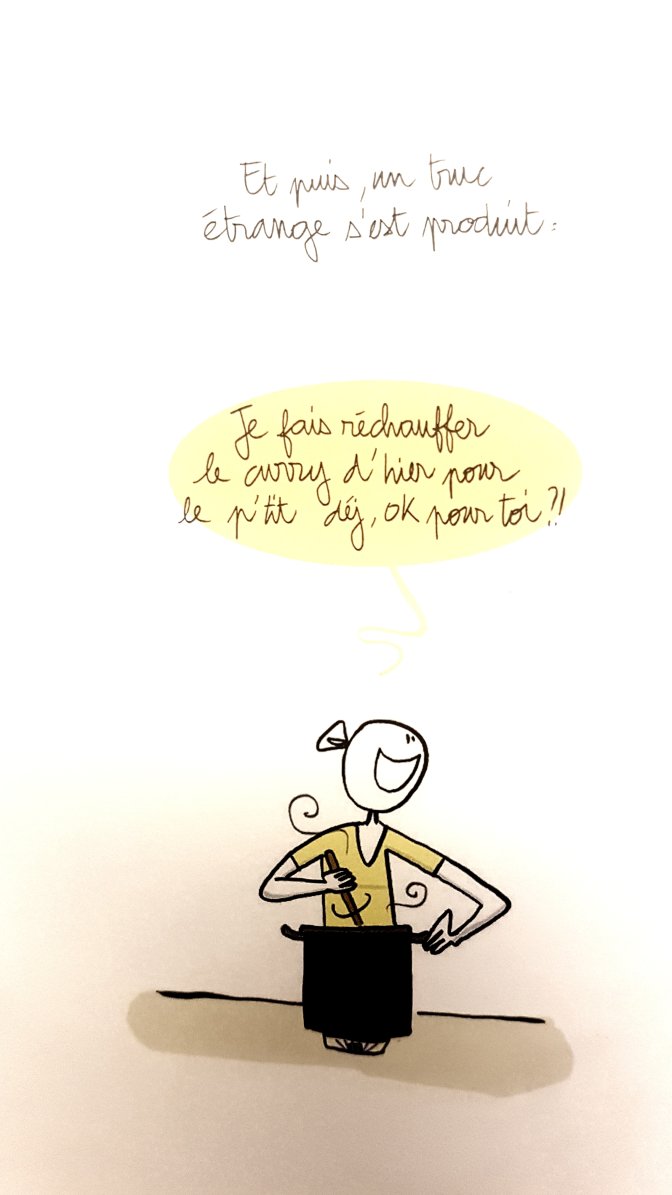 Et puis, un truc
étrange s'est produit :
Je fais réchauffer
le curry d'hier pour
le p'tit déj, ok pour toi ?!